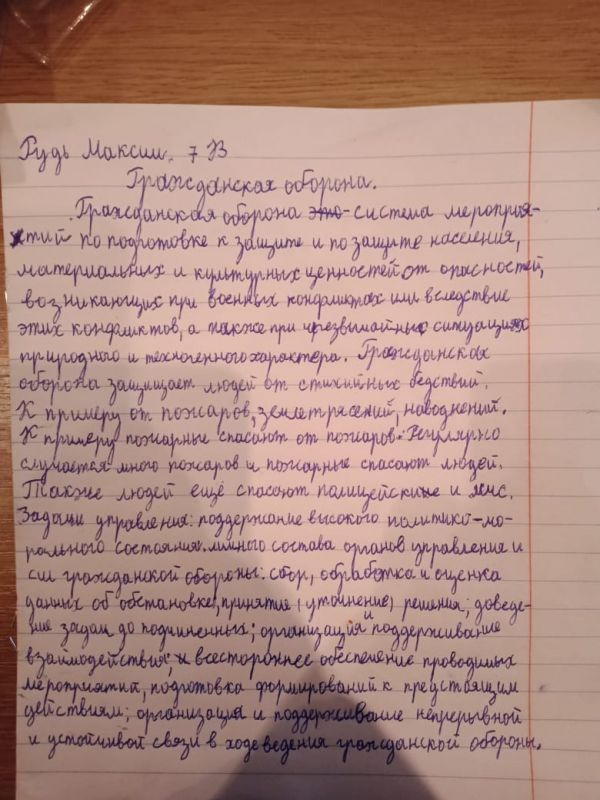 Гудь Максим. 7 В
Гражданская оборона.
Гражданская оборона это-система мероприя-
тий по подготовке к защите и по защите населения,
материальных и культурных ценностей от опасностей,
возникающих при военных конфликтах или вследствие
этих конфликтов, а также при чрезвычайных ситуациях
природного и техногенного характера. Гражданская
оборона защищает людей от стихийных бедствий.
К примеру от пожаров, землетрясений, наводнений.
К примеру пожарные спасают от пожаров. Регулярно
случается много пожаров и пожарные спасают людей.
Также людей ещё спасают полицейские и мчс.
Задачи управления: поддержание высокого политико-мо-
рального состояния личного состава органов управления и
сил гражданской обороны: сбор, обработка и оценка
данных об обстановке, принятие (уточнение) решения; доведе-
ние задач до подчиненных; организация и поддерживание
взаимодействия, и всестороннее обеспечение проводимых
мероприятий, подготовка формирований к предстоящим
действиям; организация и поддерживание непрерывной
и устойчивой связи в ходе ведения гражданской обороны.